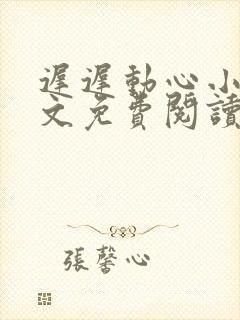 遲遲動心小
文免費閱讀
張馨心